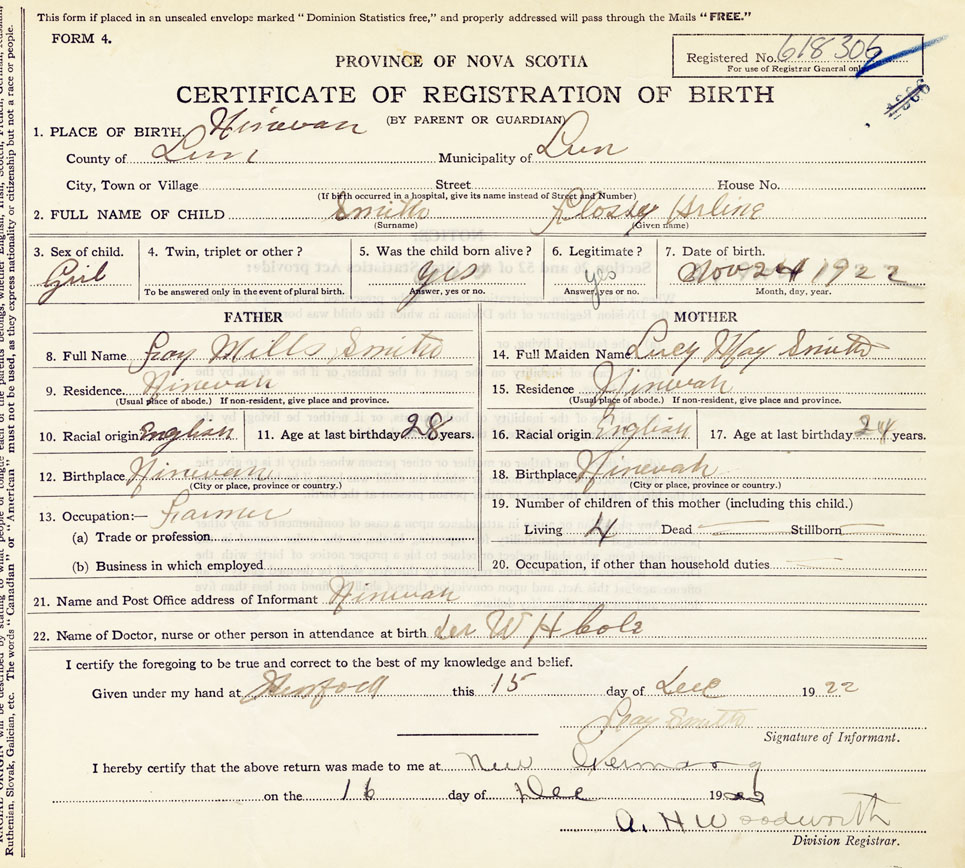 This form if placed in an unsealed envelope marked "Dominion Statistics free," and properly addressed will pass through the Mails "FREE."
FORM 4.
Registered No. 618306
For use of Registrar General only
PROVINCE OF NOVA SCOTIA
CERTIFICATE OF REGISTRATION OF BIRTH
(BY PARENT OR GUARDIAN)
1. PLACE OF BIRTH, Ninevah
County of Lun Municipality of Lun
City, Town or Village Street House No.
(If birth occurred in a hospital, give its name instead of Street and Number)
2. FULL NAME OF CHILD Smith Flossey Arline
(Surname) (Given name)
3. Sex of child. 4. Twin, triplet or other? 5. Was the child born alive? 6. Legitimate? 7. Date of birth.
Girl yes yes Nov 24 1922
To be answered only in the event of plural birth. Answer, yes or no. Answer, yes or no. Month, day, year.
FATHER MOTHER
8. Full Name Mills Smith 14. Full Maiden Name Lucy May Smith
9. Residence Ninevah 15. Residence Ninevah
(Usual place of abode.) If non-resident, give place and province. (Usual place of abode.) If non-resident, give place and province.
10. Racial origin English 11. Age at last birthday 28 years. 16. Racial origin English 17. Age at last birthday 24 years.
12. Birthplace Ninevah 18. Birthplace Ninevah
(City or place, province or country.) (City or place, province or country.)
13. Occupation:— Farmer 19. Number of children of this mother (including this child.)
(a) Trade or profession Living 4 Dead — Stillborn —
(b) Business in which employed 20. Occupation, if other than household duties —
21. Name and Post Office address of Informant Ninevah
22. Name of Doctor, nurse or other person in attendance at birth W H Cole
I certify the foregoing to be true and correct to the best of my knowledge and belief.
Given under my hand at this 15 day of Dec 1922
Smith
Signature of Informant.
I hereby certify that the above return was made to me at New Germany
on the 16 day of Dec 1922
A. H Woodworth
Division Registrar.
Ruthenian, Slovak, Galician, etc. The words "Canadian" or "American" must not be used, as they express nationality or citizenship but not a race or people.